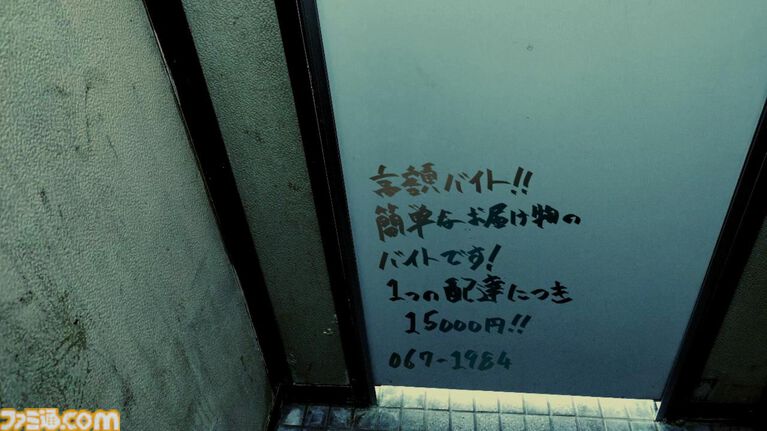 高額バイト!!
簡単なお届け物の
バイトです!
1つの配達につき
15000円!!
067-1984
ファミ通.com